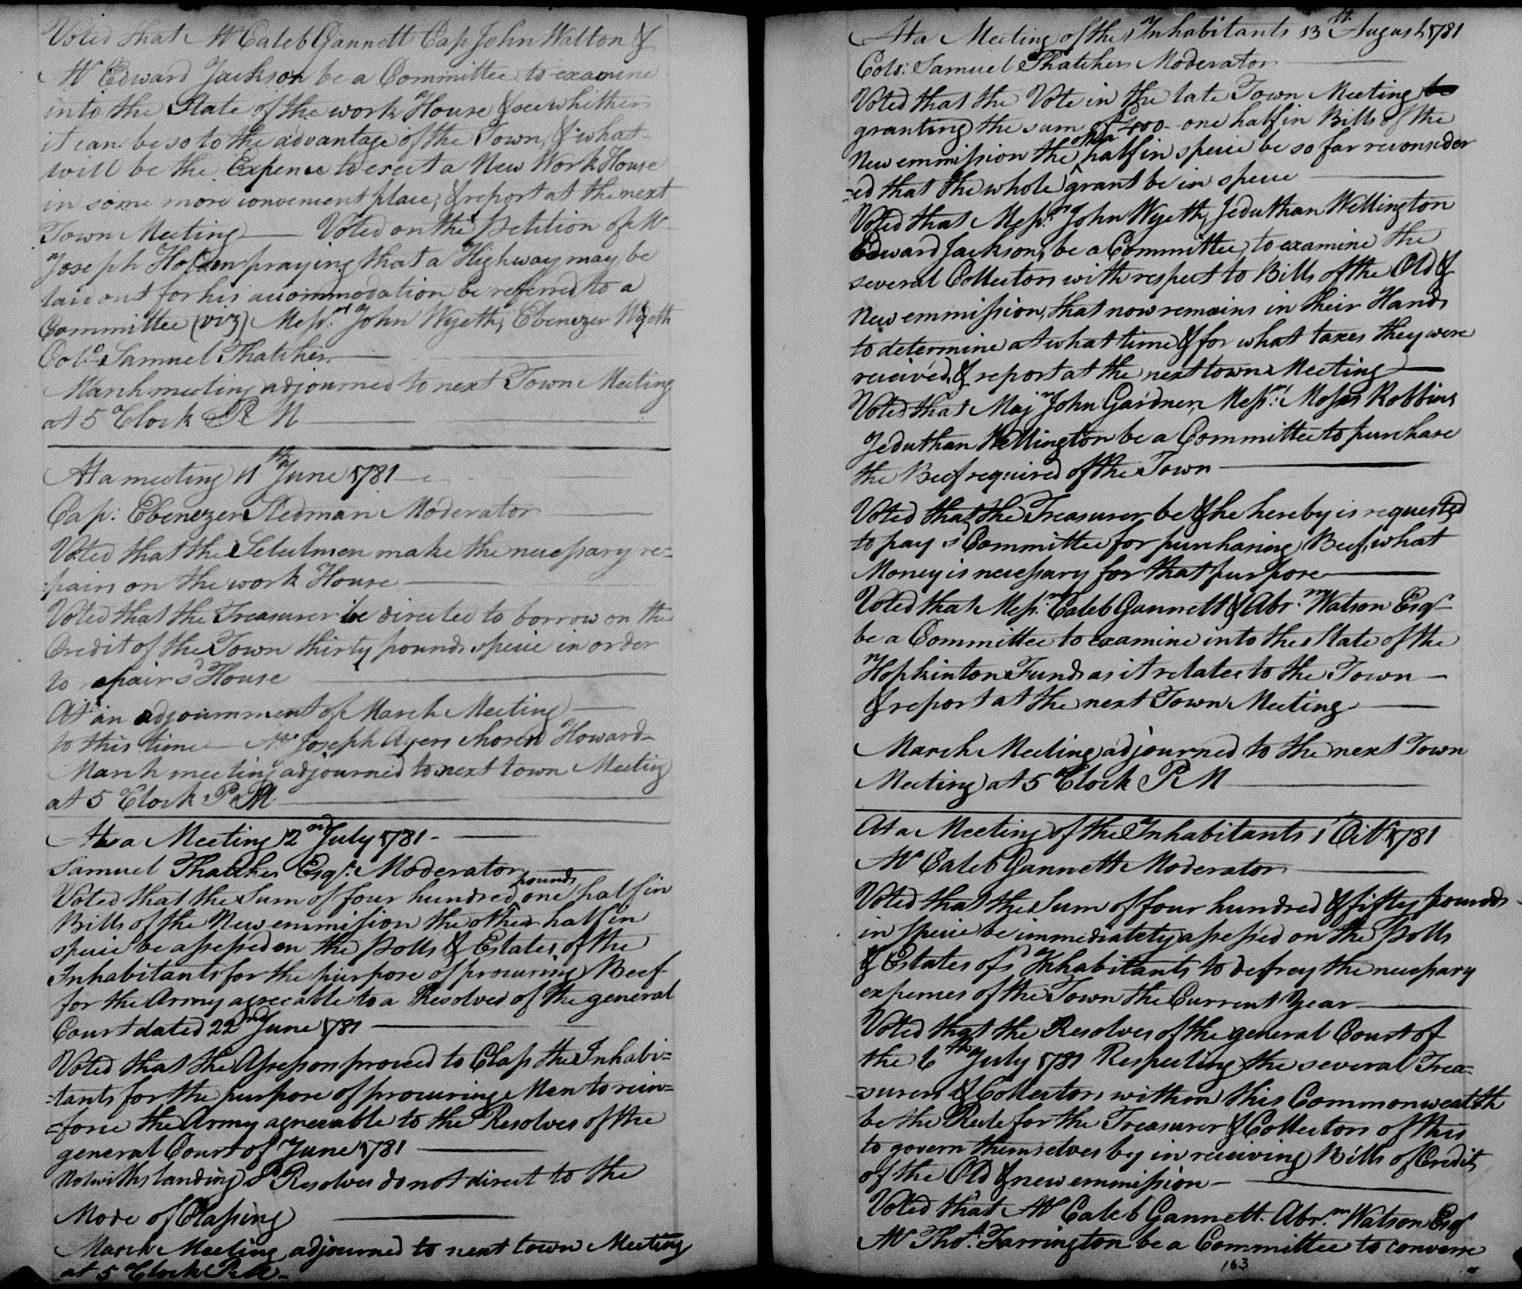 Voted that Mr Caleb Gannett Cap John Walton &
Mr Edward Jackson be a Committee to examine
into the State of the work House & see whither
it can be so to the advantage of the Town, & what
will be the Expence to erect a New Work House
in some more convenient place, & report at the next
Town Meeting — Voted on the Petition of Mr
Joseph Holden praying that a Highway may be
laid out for his accommodation be referred to a
Committee (viz) Messrs John Wyeth, Ebenezer Wyeth
Colo Samuel Thatcher —
March meeting adjourned to next Town Meeting
at 5 Clock P M
At a meeting 11th June 1781 —
Cap: Ebenezer Stedman Moderator —
Voted that the Selectmen make the necessary re=
=pairs on the work House —
Voted that the Treasurer be directed to borrow on the
Credit of the Town thirty pounds specie in order
to repair sd House
At an adjournment of March Meeting —
to this time — Mr Joseph Ayers chosen Howard
March meeting adjourned to next town Meeting
at 5 Clock P M —
At a Meeting 12nd July 1781 —
Samuel Thatcher Esqr: Moderator
Voted that the Sum of four hundred pounds one half in
Bills of the New emmission the other half in
specie be assessed on the Polls & Estates of the
Inhabitants for the purpose of procuring Beef
for the Army agreeable to a Resolved of the general
Court dated 22nd June 1781 —
Voted that the Assessors proceed to Class the Inhabi=
=tants for the purpose of procuring Men to rein=
=force the Army agreeable to the Resolves of the
general Court of June 1781 —
Notwithstanding sd Resolves do not direct to the
Mode of Classing —
March Meeting adjourned to next town Meeting
at 5 Clock P.M. —
At a Meeting of the Inhabitants 13th August 1781
Colo: Samuel Thatcher Moderator —
Voted that the Vote in the late Town Meeting be
granting the sum of £400 - one half in Bills of the
New emmission the other half in specie be so far reconsider
=ed that the whole grant be in specie —
Voted that Messrs John Wyeth, Jeduthan Wellington
Edward Jackson, be a Committee, to examine the
several Collectors with respect to Bills of the Old &
New emmission, that now remains in their Hands
to determine at what time & for what taxes they were
received, & report at the next town Meeting —
Voted that Majr John Gardner, Messrs: Moses Robbins
Jeduthan Wellington be a Committee to purchase
the Beef required of the Town —
Voted that the Treasurer be & he hereby is requested
to pay sd Committee for purchasing Beef, what
Money is necessary for that purpose —
Voted that Messrs Caleb Gannett & Abrm Watson Esqr
be a Committee to examine into the State of the
Hopkinton Fund as it relates to the Town —
& report at the next Town Meeting —
March Meeting adjourned to the next Town
Meeting at 5 Clock P M —
At a Meeting of the Inhabitants 1 Octr 1781
Mr Caleb Gannett Moderator —
Voted that the Sum of four hundred & fifty pounds
in specie be immediately assessed on the Polls
& Estates of sd Inhabitants to defrey the necessary
expenses of the Town the Current Year —
Voted that the Resolves of the general Court of
the 6th July 1781 Respecting the several Trea=
=surers & Collectors within this Commonwealth
be the Rule for the Treasurer & Collectors of this
to govern themselves by in receiving Bills of Credit
of the Old & new emmission —
Voted that Mr Caleb Gannett. Abrm Watson Esqr
Mr Thos. Farrington be a Committee to converse
163